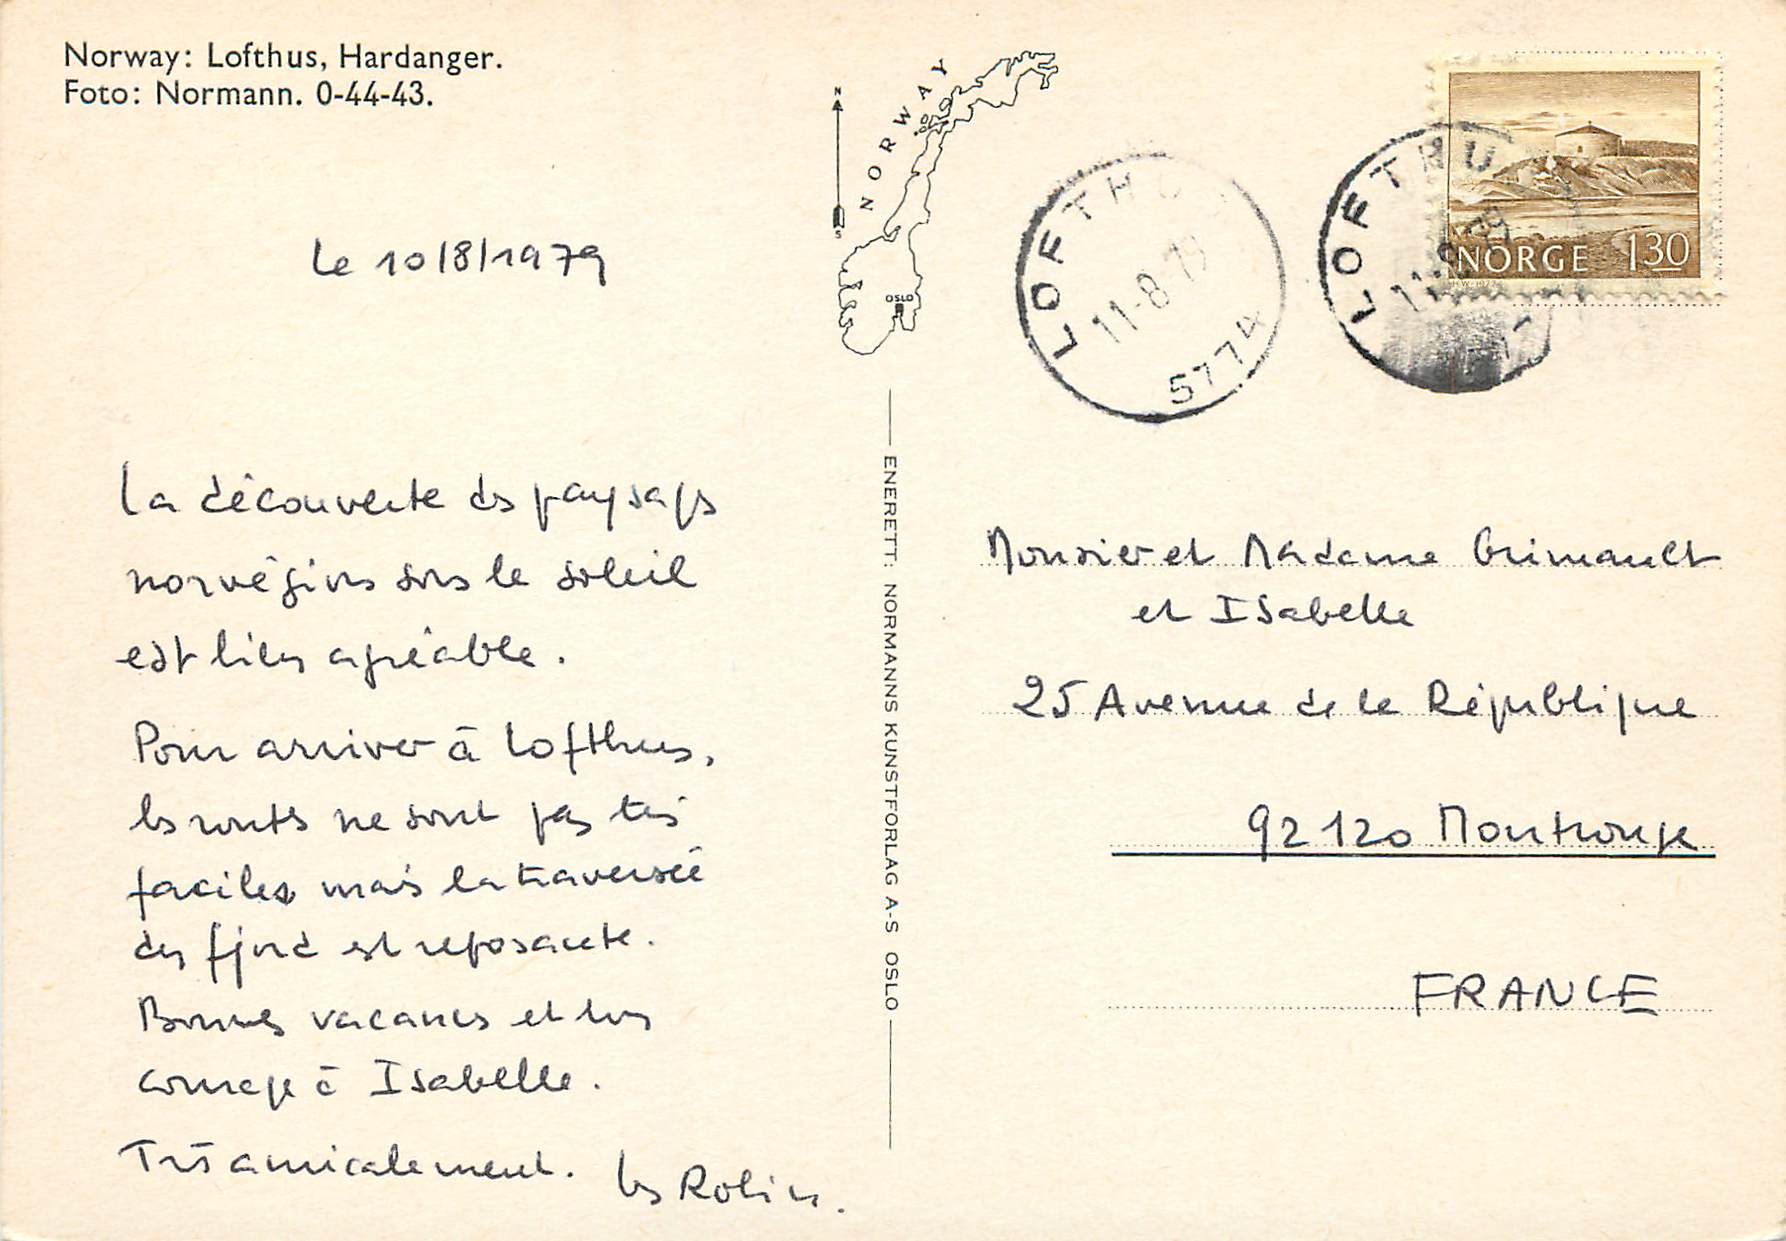 Norway: Lofthus, Hardanger.
Foto: Normann. 0-44-43.
N
S
NORWAY
OSLO
LOFTHUS
11-8-79
5774
LOFTHU
11-8-79
NORGE 130
Le 10/8/1979
La découverte des paysages
norvégiens sous le soleil
est bien agréable.
Pour arriver à Lofthus,
les routes ne sont pas très
faciles mais la traversée
des fjord est reposante.
Bonnes vacances et bon
courage à Isabelle.
Très amicalement. les Robin.
ENERETT: NORMANNS KUNSTFORLAG A-S OSLO
Monsieur et Madame Grimault
et Isabelle
25 Avenue de la République
92120 Montrouge
FRANCE